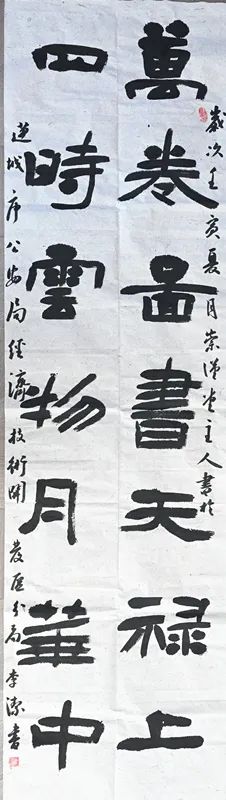 萬卷圖書天禄上
歲次壬寅夏月崇德堂主人書於
四時雲物月華中
運城市公安局經濟技術開發區分局李潔書